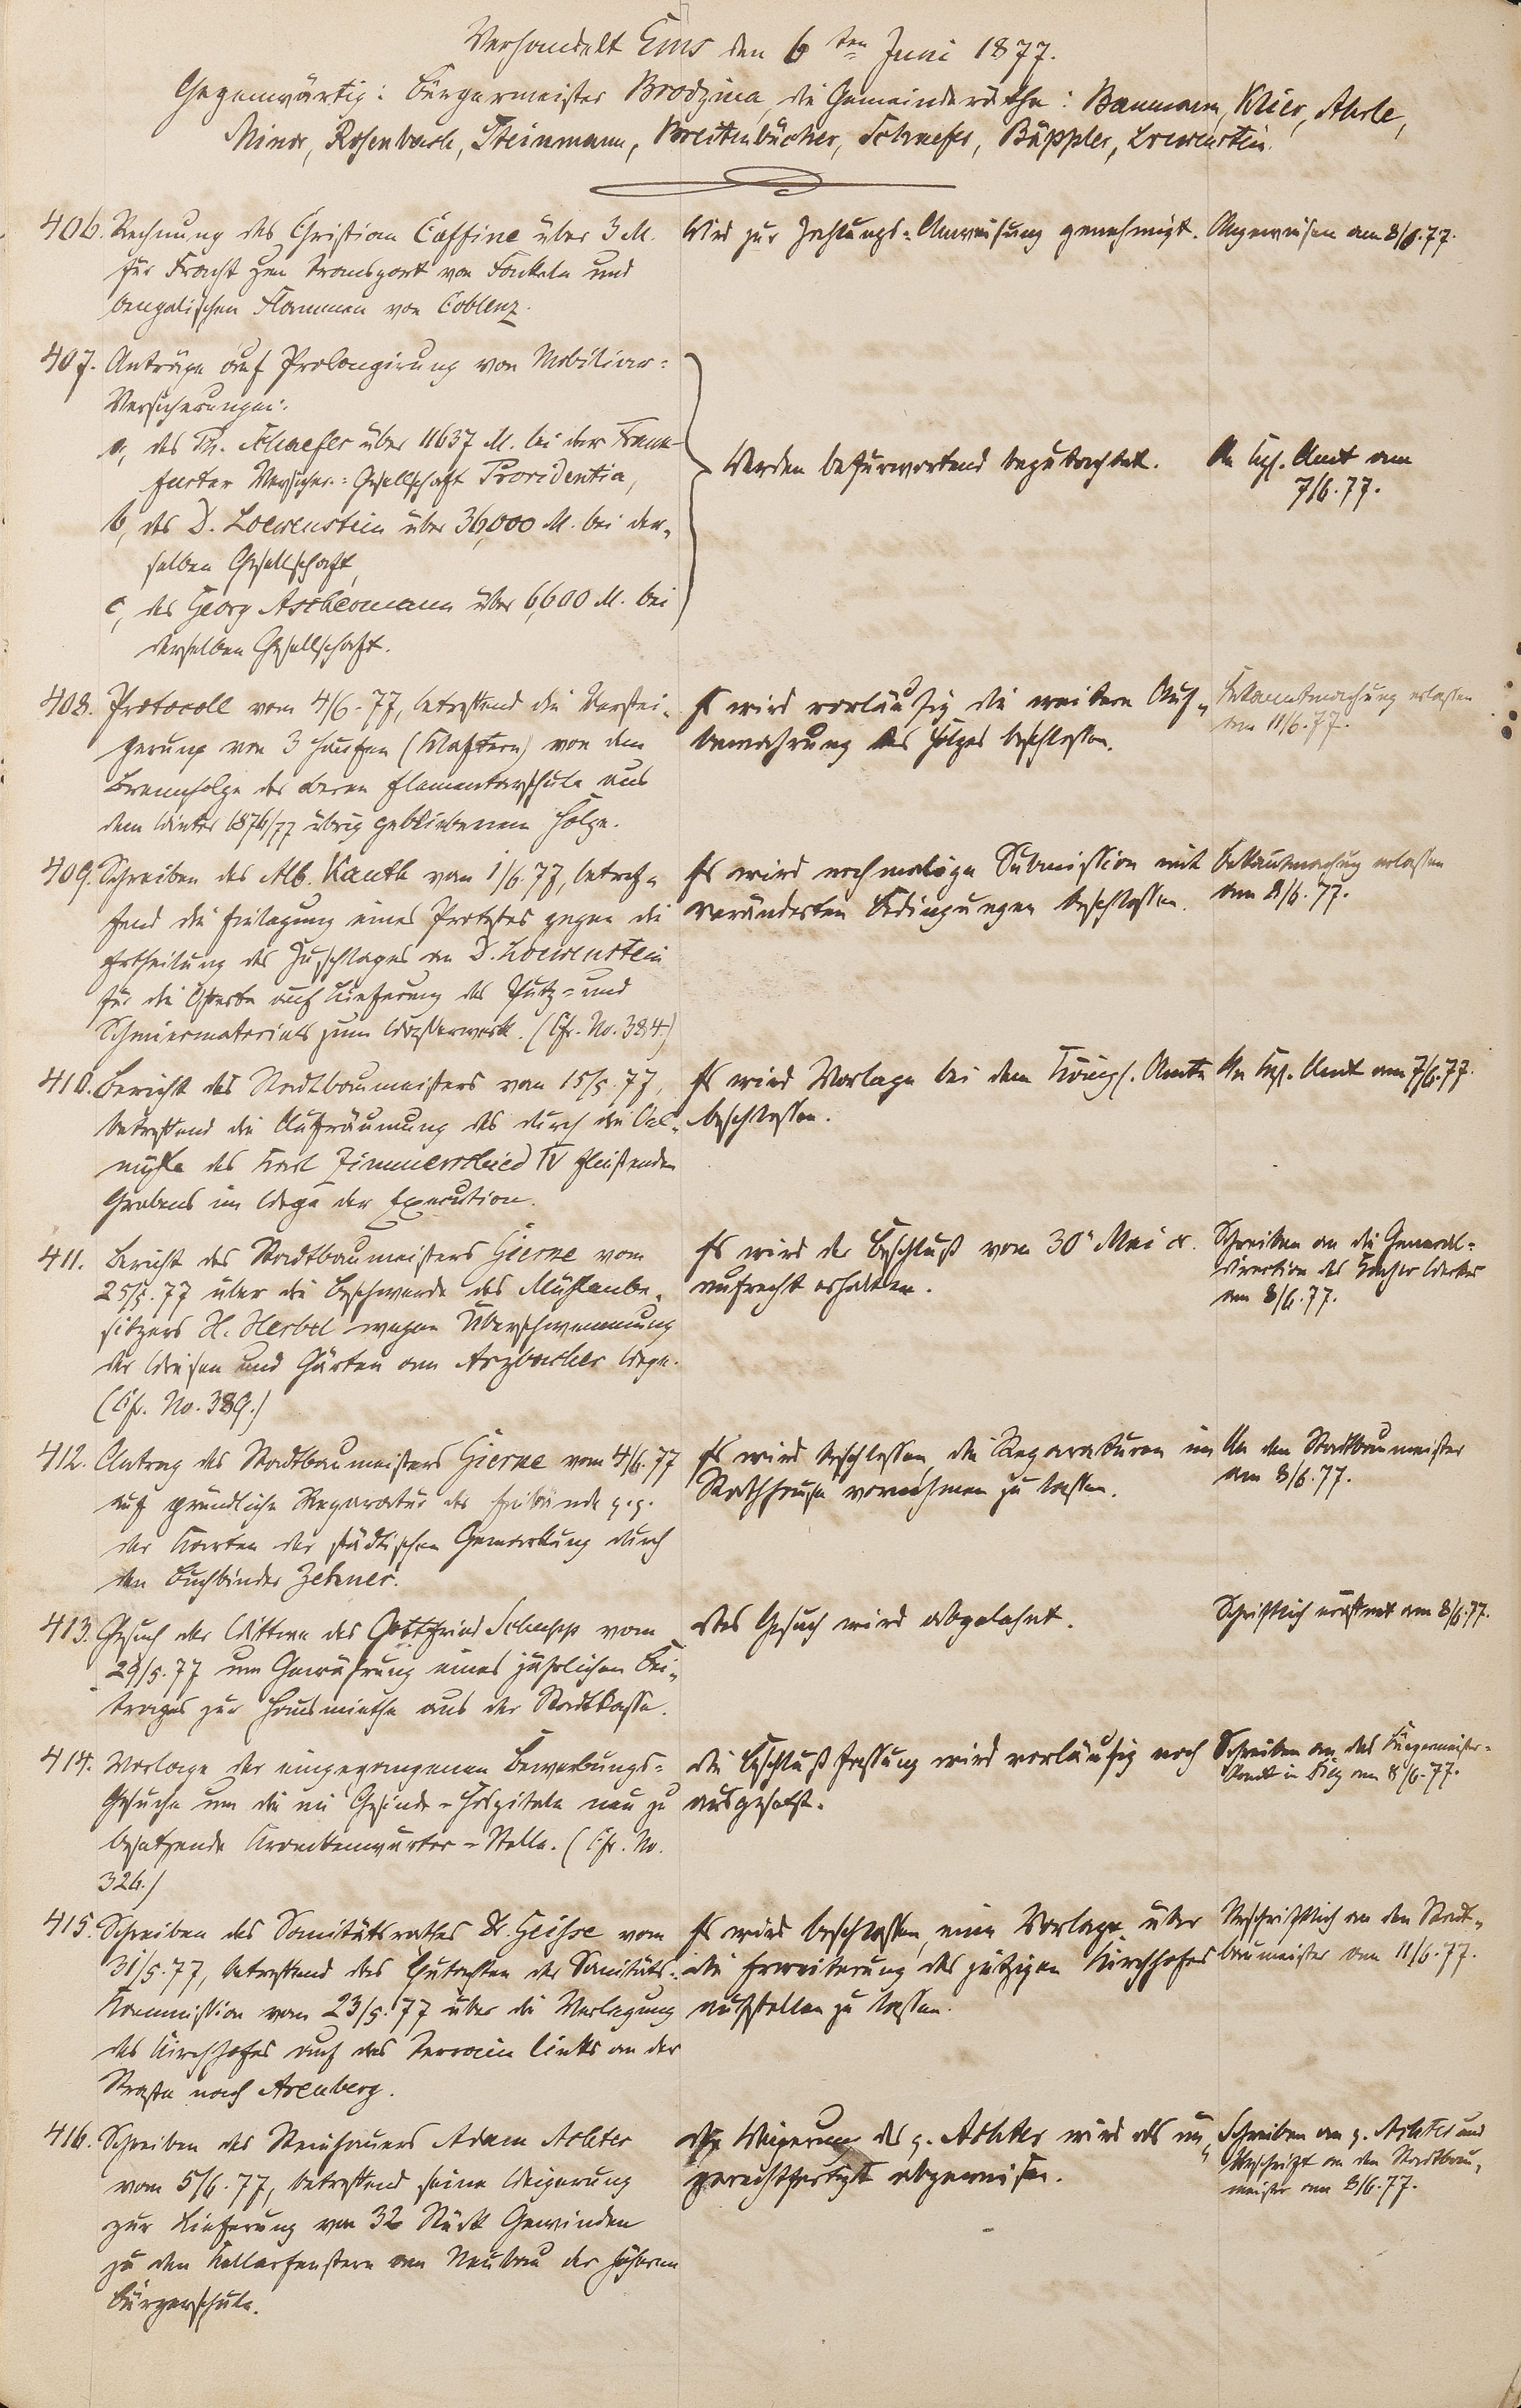 Verhandelt Ems den 6ten Juni 1877.
Gegenwärtig: Bürgermeister Brodzina, die Gemeinderäthe: Baumann, Klier, Aherle,
Minor, Rosenbach, Steinmann, Breitenbücher, Schaefer, Bäppler, Loewenstein.
406. Rechnung des Christian Caffine über 3 M.
für Fracht zum Transport von Fackeln und
bengalischen Flammen von Coblenz.
Wird zur Zahlungs-Anweisung genehmigt.
Angewiesen am 8/6.77.
407. Anträge auf Prolongirung von Mobiliar-
Versicherungen:
a, des Ph. Schaefer über 11637 M. bei der Frank-
furter Versicher.-Gesellschaft Providentia,
b, des D. Loewenstein über 36,000 M. bei der-
selben Gesellschaft,
c, des Georg Aschermann über 6,600 M. bei
derselben Gesellschaft.
Werden befürwortend begutachtet.
An Kgl. Amt am
7/6.77.
408. Protocoll vom 4/6.77, betreffend die Verstei-
gerung von 3 Haufen (Klaftern) von dem
Brennholze der oberen Elementarschule aus
dem Winter 1876/77 übrig gebliebenem Holze.
Es wird vorläufig die weitere Auf-
bewahrung des Holzes beschlossen.
Bekanntmachung erlassen
am 11/6.77.
409. Schreiben des Alb. Kauth vom 1/6.77, betref-
fend die Einlegung eines Protestes gegen die
Ertheilung des Zuschlages an D. Loewenstein
für die Offerte auf Lieferung des Putz- und
Schmiermaterials zum Wasserwerk. (Cfr. No. 384.)
Es wird nochmalige Submission mit
veränderten Bedingungen beschlossen.
Bekanntmachung erlassen
am 8/6.77.
410. Bericht des Stadtbaumeisters vom 15/5.77,
betreffend die Aufräumung des durch die Oel-
mühle des Karl Zimmerschied IV fließenden
Grabens im Wege der Execution.
Es wird Vorlage bei dem Königl. Amte
beschlossen.
An Kgl. Amt am 7/6.77.
411. Bericht des Stadtbaumeisters Gierne vom
25/5.77 über die Beschwerde des Mühlenbe-
sitzers H. Herbel wegen Überschwemmung
der Wiesen und Gärten am Arzbacher Wege.
(Cfr. No. 389.)
Es wird der Beschluß vom 30. Mai cr.
aufrecht erhalten.
Schreiben an die General-
direction des Emser Werkes
am 8/6.77.
412. Antrag des Stadtbaumeisters Gierne vom 4/6.77
auf gründliche Reparatur der
der Karten der städtischen Gemarkung durch
den Buchbinder Zehner.
Es wird beschlossen, die Reparaturen im
Rathhause vornehmen zu lassen.
An den Stadtbaumeister
am 8/6.77.
413. Gesuch der Wittwe des Gottfried Schupp vom
29/5.77 um Gewährung eines jährlichen Bei-
trages zur Hausmiethe aus der Stadtkasse.
Das Gesuch wird abgelehnt.
Schriftlich eröffnet am 8/6.77.
414. Vorlage der eingegangenen Bewerbungs-
Gesuche um die im Gesinde-Hospitale neu zu
besetzende Krankenwärter-Stelle. (Cfr. No.
326.)
Die Beschlußfassung wird vorläufig noch
ausgesetzt.
Schreiben an das Bürgermeister-
Amt in Diez am 8/6.77.
415. Schreiben des Sanitätsrathes Dr. Geisse vom
31/5.77, betreffend das Gutachten der Sanitäts-
Kommission vom 23/5.77 über die Verlegung
des Kirchhofes auf das Terrain links an der
Straße nach Arenberg.
Es wird beschlossen, eine Vorlage über
die Erweiterung des jetzigen Kirchhofes
aufstellen zu lassen.
Urschriftlich an den Stadt-
baumeister am 11/6.77.
416. Schreiben des Steinhauers Adam Achter
vom 5/6.77, betreffend seine Weigerung
zur Lieferung von 32 Stück Gewinden
zu den Kellerfenstern am Neubau der höheren
Bürgerschule.
Die Weigerung des p. Achter wird als un-
gerechtfertigt abgewiesen.
Schreiben an p. Achter und
Abschrift an den Stadtbau-
meister am 8/6.77.